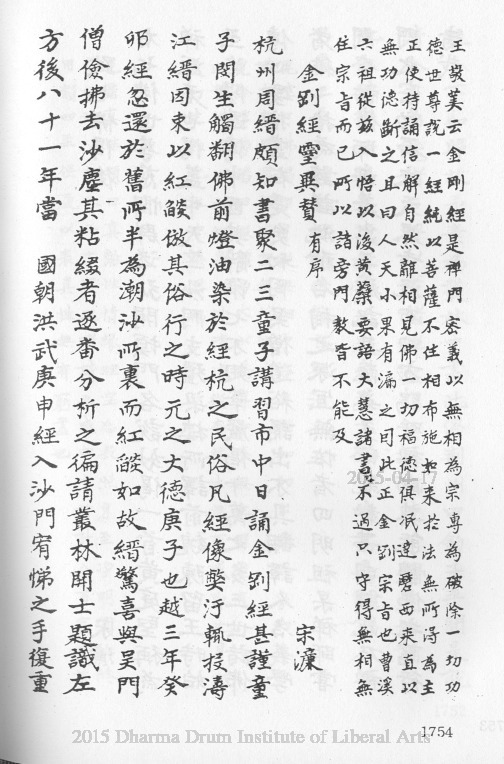 王敬美云金剛經是禪門密義以無相為宗專為破除一切功
德世尊說一經統以菩薩不住相布施如来於法無所淂為主
正使持誦信解自然離相見佛一切福德俱冺達磨西来直以
無功德斷之且曰人天小果有漏之因此正金剛宗旨也曹溪
六祖從兹入悟以後黃蘗要語大慧諸書不過只守得無相無
住宗旨而已所以諸旁門教皆不能及
金剛經靈異贊 有序
宋濂
杭州周縉頗知書聚二三童子講習市中日誦金剛經甚謹童
子閔生觸翻佛前燈油染於經杭之民俗凡經像墮汙輒投濤
江縉因束以紅皦倣其俗行之時元之大德庚子也越三年癸
卯經忽還於舊所半為潮沙所裹而紅皦如故縉驚喜與吴門
僧儉拂去沙塵其粘綴者逐畨分析之徧請叢林開士題識左
方後八十一年當 國朝洪武庚申經入沙門宥悌之手復重
2015-04-17
1754
2015 Dharma Drum Institute of Liberal Arts